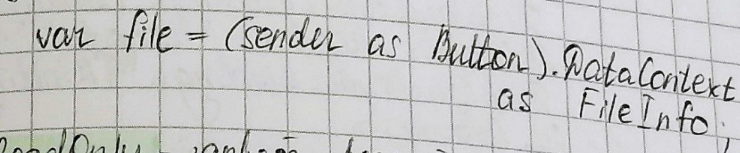 var file = (sender as Button).DataContext
as FileInfo;